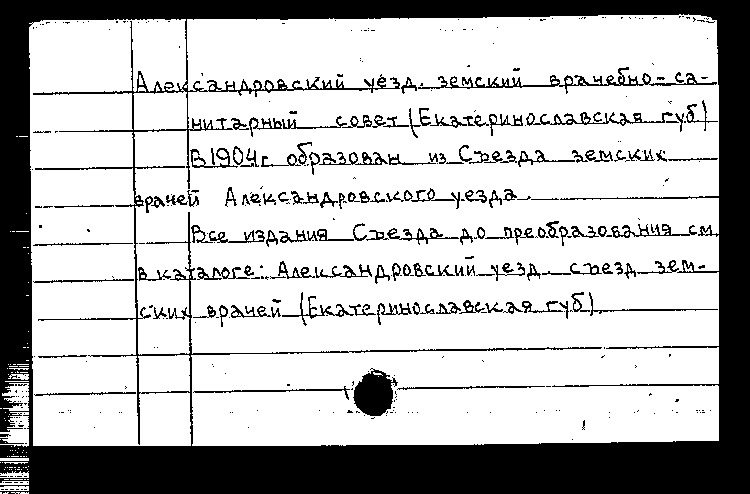 Александровский уезд. земский врачебно-са-
нитарный совет (Екатеринославская губ)
В 1904 г. образован из Съезда земских
врачей Александровского уезда.
Все издания Съезда до преобразования см.
в каталоге: Александровский уезд. съезд зем-
ских врачей (Екатеринославская губ).